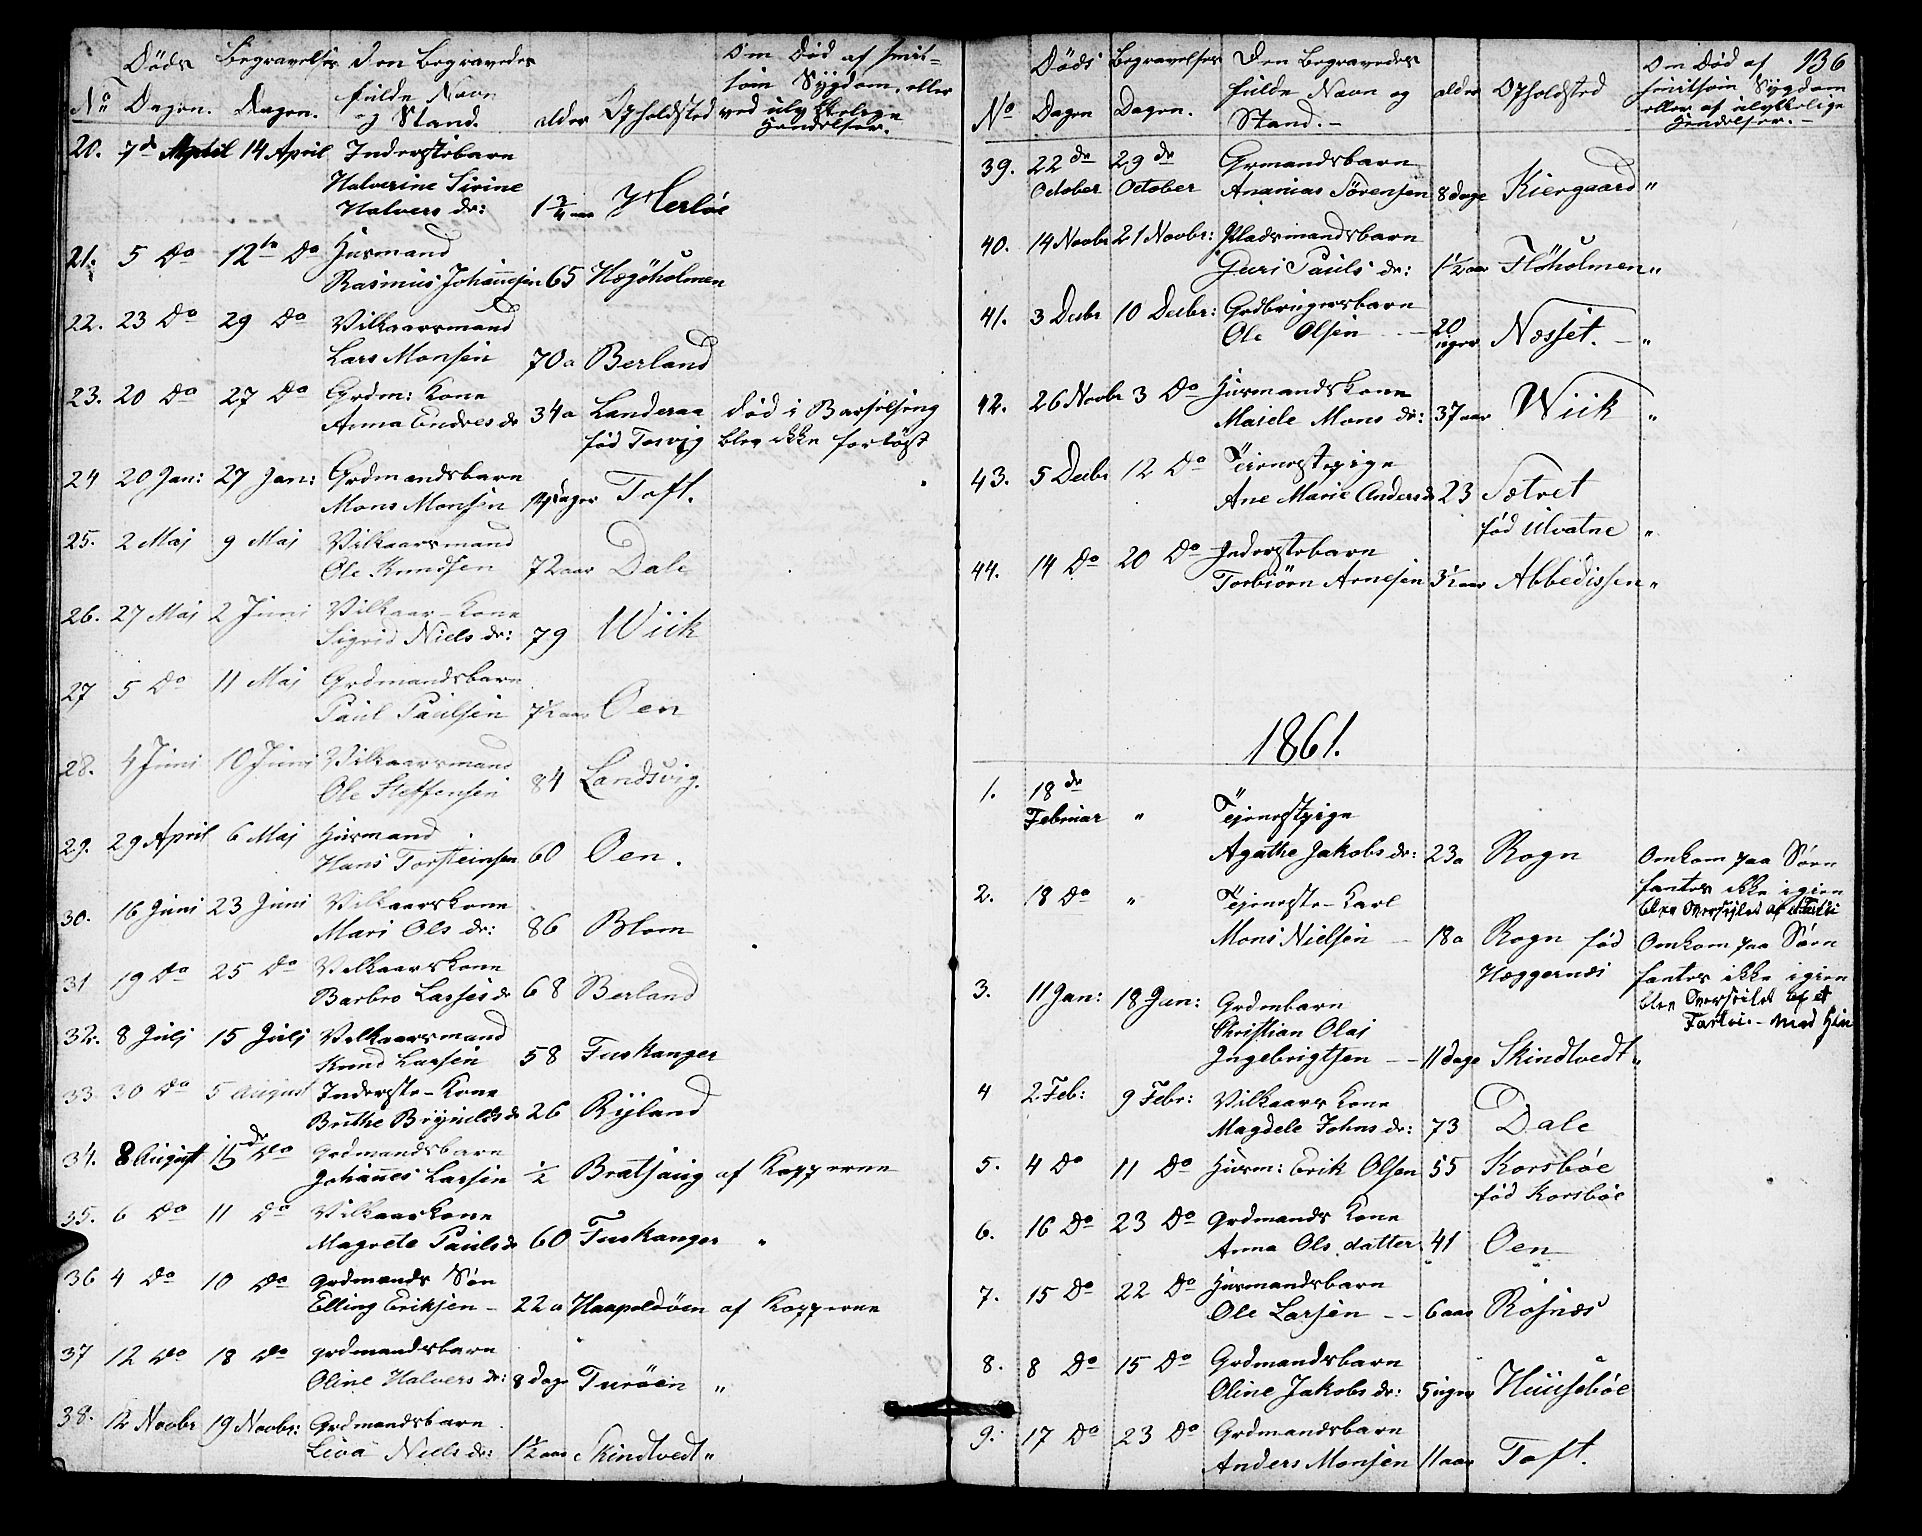 Døds Begravelses Den Begravedes Om Død af smit-
No Dagen. Dagen. fulde Navn og Stand. alder Opholdsted som Sygdom, eller ved ulykkelige Hendelser.
20. 7d April 14 April Inderstebarn
Halverine Sirine
Halvers dr: 1 3/4 aar Herløe
21. 5 Do 12te Do Husmand
Rasmus Johannesen 65 Hægøholmen
22. 23 Do 29 Do Vilkaarsmand
Lars Monsen 70a Berland
23. 20 Do 27 Do Grdm: Kone
Anna Endres dr 34a Landeraa Død i Barselseng
fød Torvig blev ikke forløst
24 20 Jan: 27 Jan: Grdmandsbarn
Mons Monsen 14 dager Toft.
25. 2 Maj 9 Maj Vilkaarsmand
Ole Knudsen 72 aar Dale
26. 27 Maj 2 Juni Vilkaar-Kone
Sigrid Niels dr: 79 Wiik
27 5 Do 11 Maj Grdmandsbarn
Paul Paulsen 7 1/2 aar Oen
28. 4 Juni 10 Juni Vilkaarsmand
Ole Steffensen 84 Landsvig.
29. 29 April 6 Maj Husmand
Hans Torsteinsen 60 Oen.
30. 16 Juni 23 Juni Vilkaarskone
Mari Ols dr: 86 Blom
31 19 Do 25 Do Vilkaarskone
Barbro Lasses dr 68 Berland
32. 8 Julj 15 Julj Vilkaarsmand
Knud Larsen 58 Fuskanger
33. 30 Do 5 August Inderste-Kone
Brithe Brynilds dr 26 Ryland
34. 8 August 15de Do Grdmandsbarn
Johannes Larsen 1/2 Bratsaug af Kopperne
35. 6 Do 11 Do Vilkaarkone
Magrete Pauls dr 60 Fuskanger "
36 4 Do 10 Do Grdmands Søn
Elling Eriksen - 22a Haapoldøen af Kopperne
37 12 Do 18 Do grdmandsbarn
Oline Halvers dr: 8 dage Turøen "
38. 12 Novbr 19 Novbr: Grdmandsbarn
Liva Niels dr: 1 1/2 aar Skindtvedt "
136
Døds Begravelses Den Begravedes Om Død af
No Dagen Dagen. fulde Navn og Stand.- alder Opholdsted smitsom Sygdom
eller af ulykkelige
Hendelser.-
39. 22de 29de Grmandsbarn
October October Ananias Sørensen 8 dage Kiergaard "
40. 14 Novbr 21 Novbr: Pladsmandsbarn
Guri Pauls dr: 1 1/2 aar Fløholmen "
41. 3 Decbr 10 Decbr: Grdbrugersbarn
Ole Olsen - 20 uger Næsset. - "
42. 26 Novbr 3 Do Husmandskone
Marele Mons dr: 37 aar Wiik "
43. 5 Decbr 12 Do Tjenestepige
Ane Marie Anders dr 23 Sætret
fød Ulvatne "
44. 14 Do 20 Do Inderstebarn
Torbiørn Arnesen 3 1/2 aar Abbedissen "
1861.
1. 18de
Februar " Tejenestpige
Agathe Jakobs dr: 23a Rogn Omkom paa Søen
fantes ikke igien
blev Overseilet af et Fartøi
2. 18 Do " Tejeneste-Karl
Mons Nielsen - 18a Rogn fød Omkom paa Søen
Hæggernæs fantes ikke igien
blev Overseilet af et
Fartøi.-
3. 11 Jan: 18 Jan: Grdmbarn
Christian Olai
Ingebrigtsen -- 11 dage Skindtvedt "
4 2 Feb: 9 Febr: Vilkaars Kone
Magdele Johns dr: 73 Dale
5. 4 Do 11 Do Husm: Erik Olsen 55 Korsbøe
fød Korsbøe
6. 16 Do 23 Do Grdmands Kone
Anna Ols datter 41 Oen
7. 15 Do 22 Do Husmandsbarn
Ole Larsen -- 6 aar Rosnæs
8. 8 Do 15 Do Grdmandsbarn
Oline Jakobs dr: 5 uger Huusebøe
9. 17 Do 23 Do Grdmandsbarn
Anders Monsen 11 aar Toft.